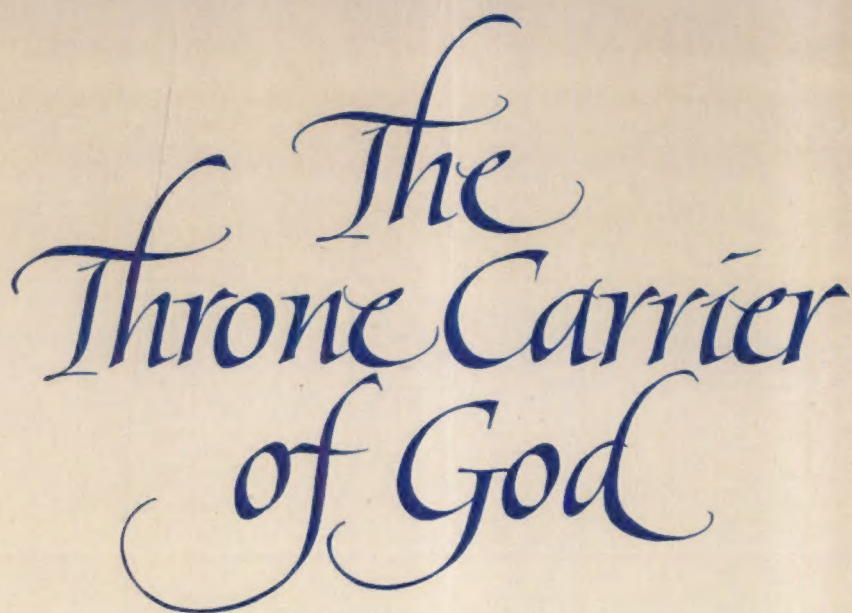 The
Throne Carrier
of God